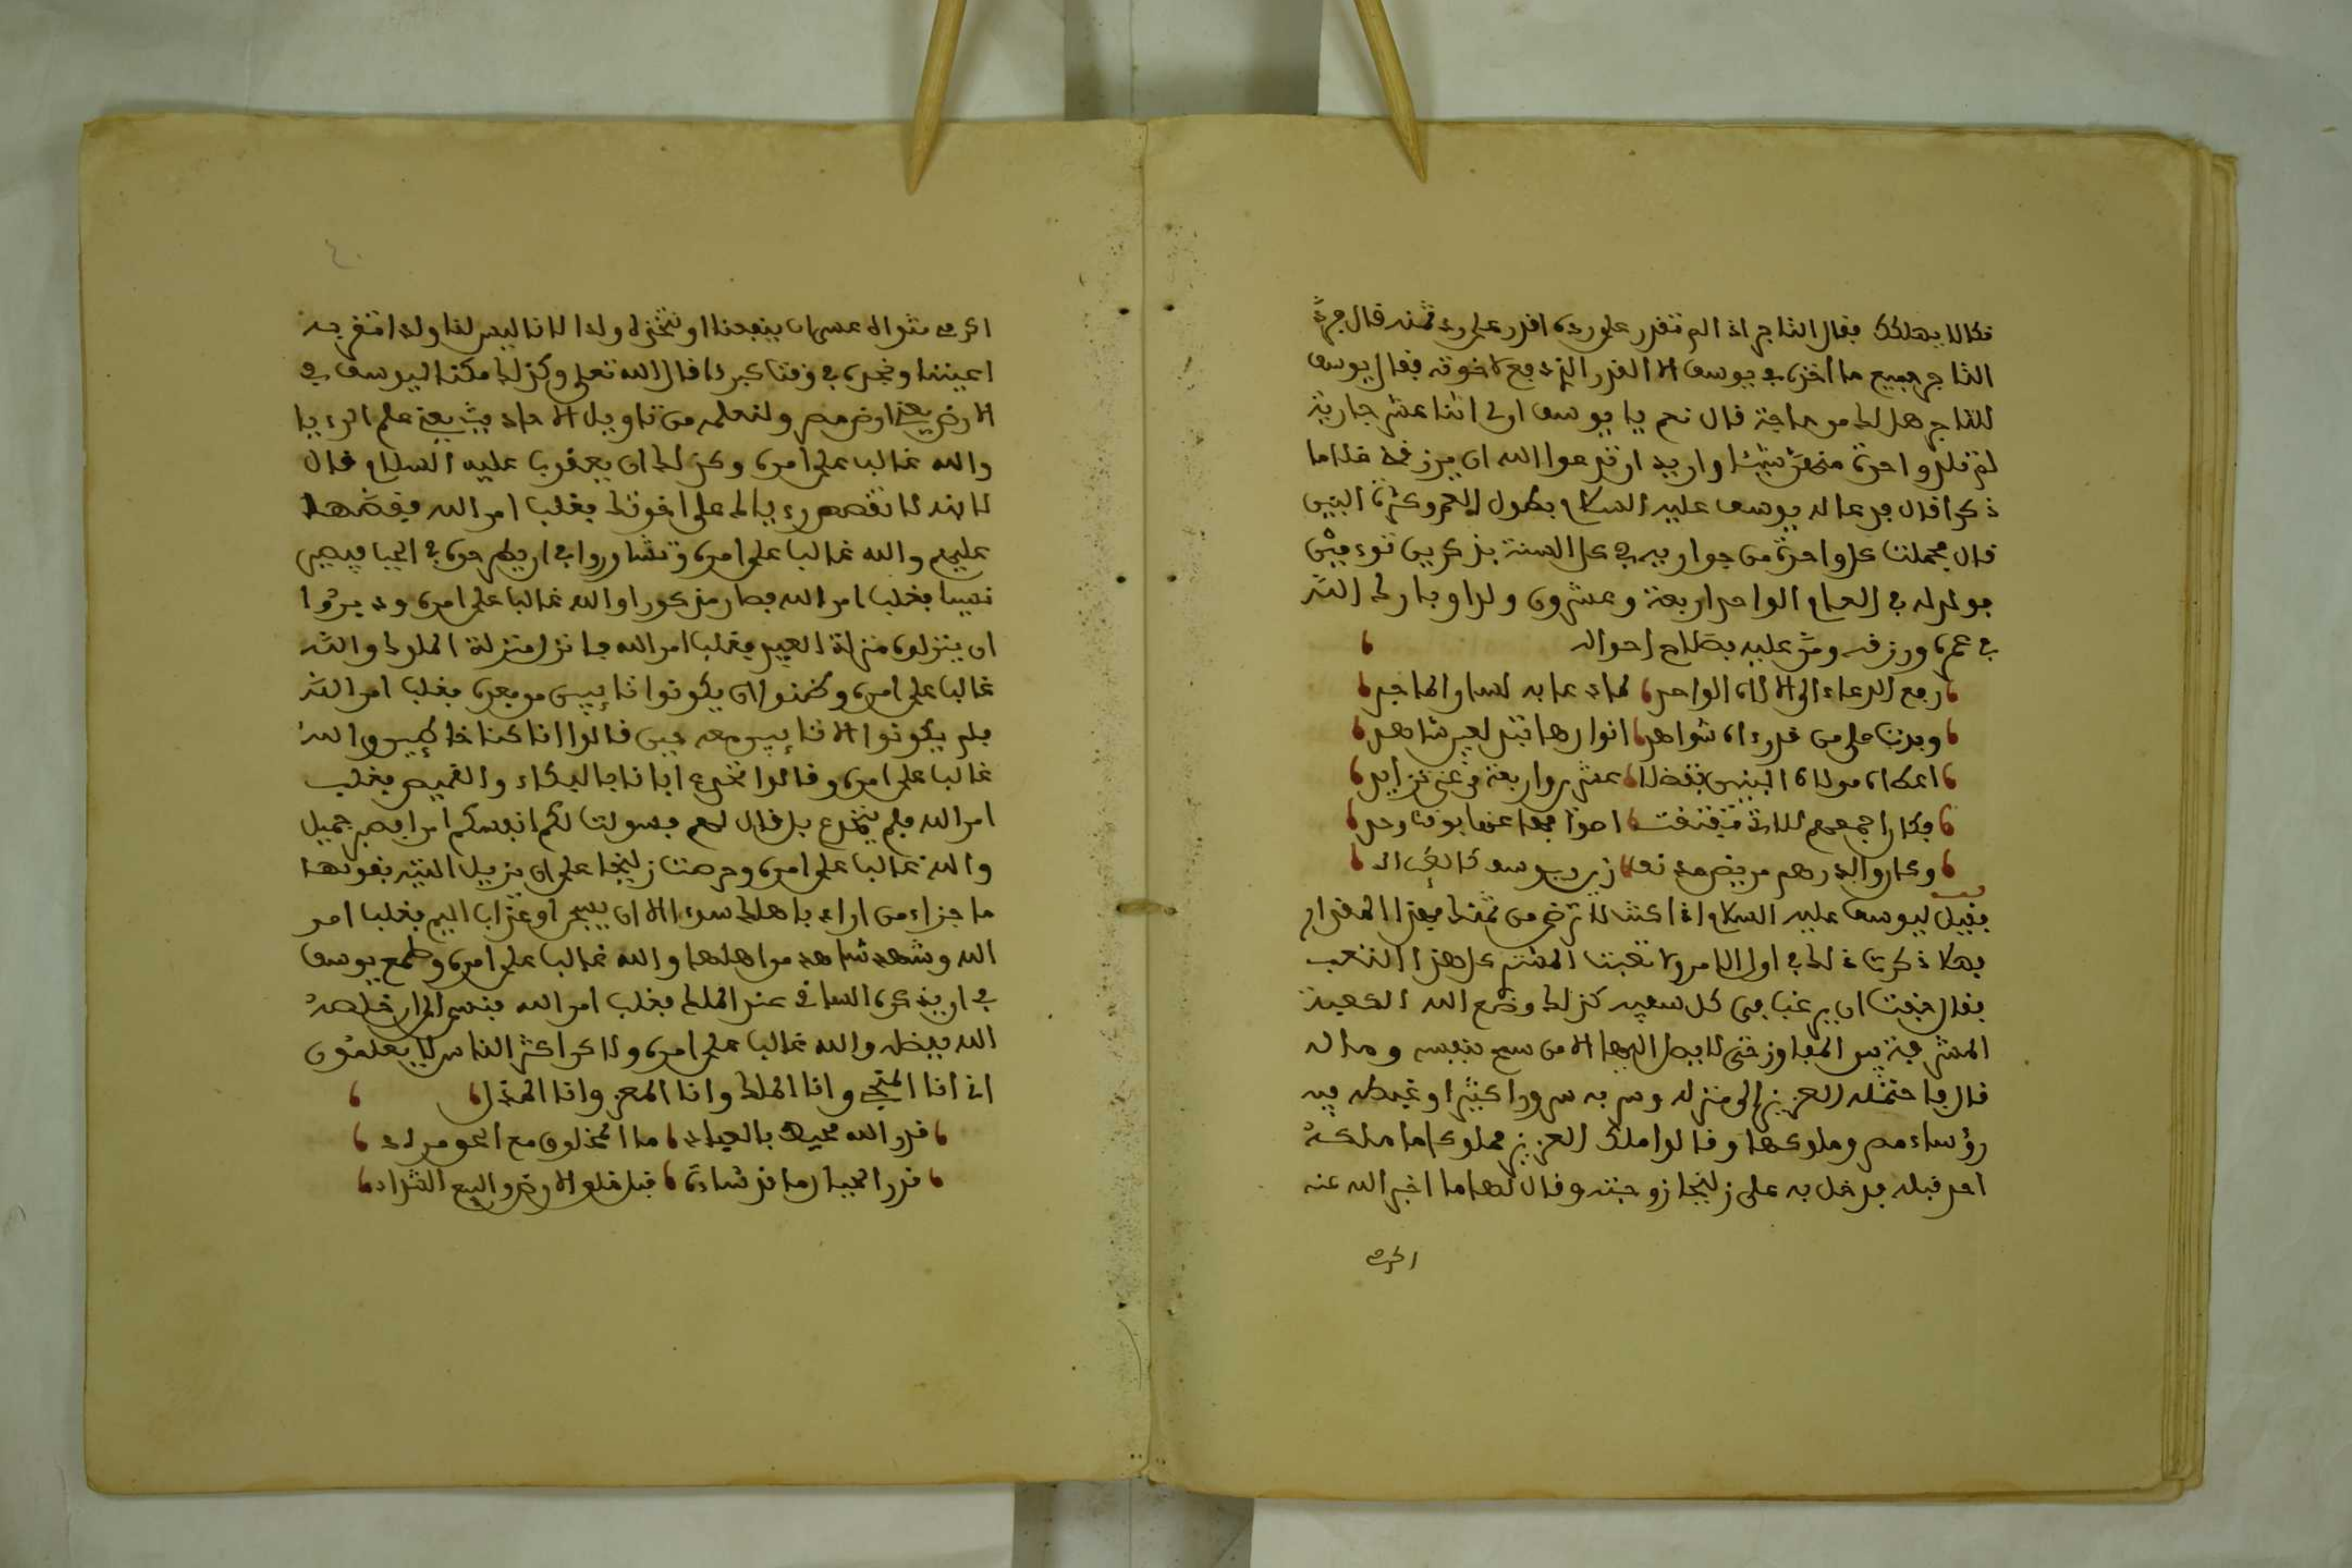 فكالا يهلكك فقال التاجر اذ الم تقدر على ردي اقدر على رد ثمنه قال فرد
التاجر جميع ما أخذ في يوسف الا القدر الذي دفع لاخوته فقال يوسف
للتاجر هل لك من حاجة قال نعم يا يوسف ان لي اثنا عشر جارية
لم تلد واحدة منهن شيئا واريد ان تدعوا الله ان يرزقني غلاما
ذكرا قال فدعا له يوسف عليه السلام بطول العمر وكثرة البنين
قال فحملت كل واحدة من جواريه في كل السنة بذكرين توءمين
فولد له في العام الواحد اربعة وعشرون ولدا وبارك الله
في عمره ورزقه ومن عليه بصلاح احواله
رفع الدعاء الى الالاه الواحد لما دعا به لسان الماجد
وبدت على من شواهد انوارها تبدو لغير شاهد
اعطاه مولاه البنين تفضلا عشرين واربعة
فقيل ليوسف عليه السلام اذا كنت لا ترضى من ثمنك بهذا المقدار
فهلا ذكرت ذلك في اول الامر ولا تعبت المشتري كل هذا التعب
فقال خفت ان يرغب في كل سفيه كذلك وضع الله الكعبة
المشرفة بين المفاوز حتى لا يصل اليها الا من سمح بنفسه وماله
قال فاحتمله العزيز الى منزله وسر به سرورا كثيرا وغبطه فيه
رؤساء مصر وملوكها وقالوا ملك العزيز مملوكا ما ملكه
احد قبله فدخل به على زليخا زوجته وقال لها ما اخبر الله عنه
اكرمي
اكرمي مثواه عسى ان ينفعنا او نتخذه ولدا لانا ليس لنا ولد تقر به
اعيننا ونحن في وقت كبر قال الله تعلى وكذلك مكنا ليوسف في
الارض يعني ارض مصر ولنعلمه من تاويل الاحاديث يعني علم الرءيا
والله غالب على امره وذلك ان يعقوب عليه السلام قال
لابنه لا تقصص رءياك على اخوتك فغلب امر الله فقصها
عليهم والله غالب على امره وتشاوروا في ان يطرحوه في الجب فيصير
نسيا فغلب امر الله فصار مذكورا والله غالب على امره ودبروا
ان ينزلوه منزلة العبيد فغلب امر الله فانزل منزلة الملوك والله
غالب على امره وظنوا ان يكونوا تائبين من بعده فغلب امر الله
فلم يكونوا الا تائبين معه حين قالوا انا كنا خاطئين والله
غالب على امره وقالوا نخدع ابانا بالبكاء والقميص فغلب
امر الله فلم ينخدع بل قال لهم بل سولت لكم انفسكم امرا فصبر جميل
والله غالب على امره وحرصت زليخا على ان تزيل التهمة بقولها
ما جزاء من اراد باهلك سوءا الا ان يسجن او عذاب اليم فغلب امر
الله وشهد شاهد من اهلها والله غالب على امره وطمع يوسف
في ان يذكره الساقي عند الملك فغلب امر الله فنسي الى ان خلصه
الله بفضله والله غالب على امره ولاكن اكثر الناس لا يعلمون
اني انا المنجي وانا الملك وانا المعز وانا المذل
قدر الله محيط بالعباد ما المخلوق مع الحق مراد
قدر الجبار ما قد شاءه قبل خلق الارض والسبع الشداد